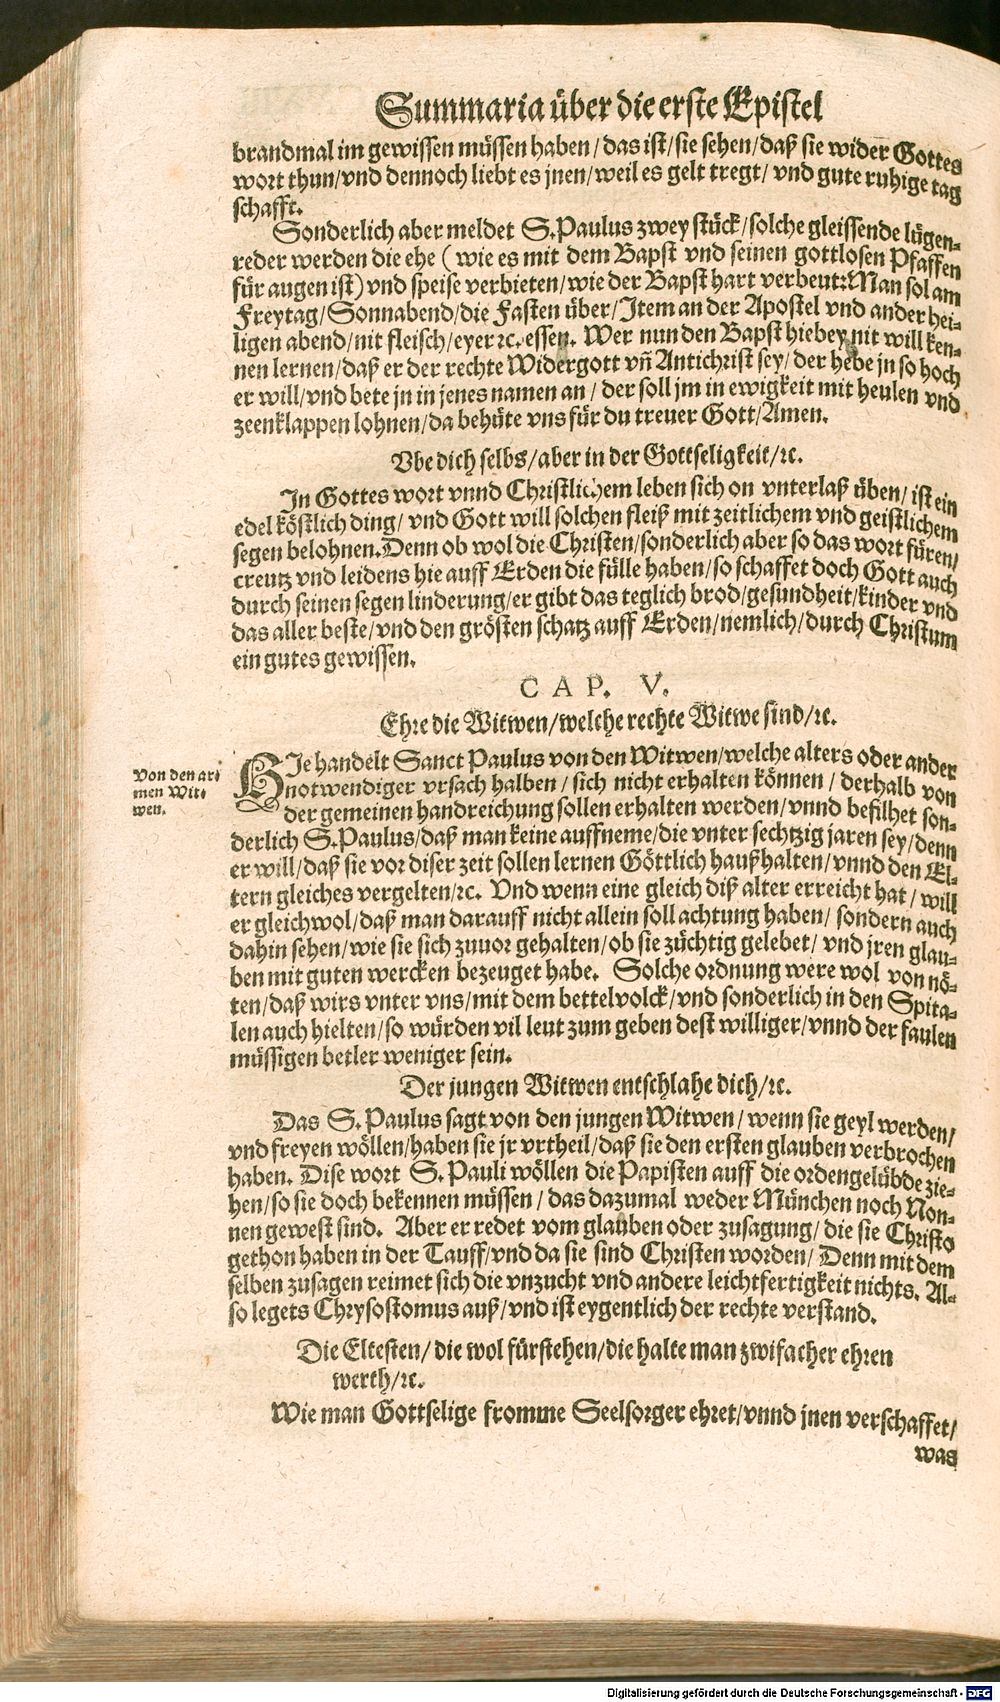 Summaria über die erste Epistel
brandmal im gewissen müssen haben/das ist/sie sehen/daß sie wider Gottes
wort thun/vnd dennoch liebt es jnen/weil es gelt tregt/vnd gute ruhige tag
schafft.
Sonderlich aber meldet S.Paulus zwey stück/solche gleissende lügen-
reder werden die ehe (wie es mit dem Bapst vnd seinen gottlosen Pfaffen
für augen ist) vnd speise verbieten/wie der Bapst hart verbeut: Man sol am
Freytag/Sonnabend/die Fasten über/Item an der Apostel vnd ander hei-
ligen abend/nit fleisch/eyer ꝛc. essen. Wer nun den Bapst hiebey nit will ken-
nen lernen/daß er der rechte Widergott vñ Antichrist sey/der hebe jn so hoch
er will/vnd bete jn in jenes namen an/der soll jm in ewigkeit mit heulen vnd
zeenklappen lohnen/da behüte vns für du treuer Gott/Amen.
Vbe dich selbs/aber in der Gottseligkeit/ꝛc.
In Gottes wort vnnd Christlichem leben sich on vnterlaß üben/ist ein
edel köstlich ding/vnd Gott will solchen fleiß mit zeitlichem vnd geistlichem
segen belohnen. Denn ob wol die Christen/sonderlich aber so das wort füren/
creutz vnd leidens hie auff Erden die fülle haben/so schaffet doch Gott auch
durch seinen segen linderung/er gibt das teglich brod/gesundheit/kinder vnd
das aller beste/vnd den grösten schatz auff Erden/nemlich/durch Christum
ein gutes gewissen.
CAP. V.
Ehre die Witwen/welche rechte Witwe sind/ꝛc.
Von den ar-
men Wit-
wen.
HIe handelt Sanct Paulus von den Witwen/welche alters oder ander
notwendiger vrsach halben/sich nicht erhalten können/derhalb von
der gemeinen handreichung sollen erhalten werden/vnnd befilhet son-
derlich S.Paulus/daß man keine auffneme/die vnter sechtzig jaren sey/denn
er will/daß sie vor diser zeit sollen lernen Göttlich haußhalten/vnnd den El-
tern gleiches vergelten/ꝛc. Vnd wenn eine gleich diß alter erreicht hat/will
er gleichwol/daß man darauff nicht allein soll achtung haben/sondern auch
dahin sehen/wie sie sich zuuor gehalten/ob sie züchtig gelebet/vnd jren glau-
ben mit guten wercken bezeuget habe. Solche ordnung were wol von nö-
ten/daß wirs vnter vns/mit dem bettelvolck/vnd sonderlich in den Spita-
len auch hielten/so würden vil leut zum geben dest williger/vnnd der faulen
müssigen betler weniger sein.
Der jungen Witwen entschlahe dich/ꝛc.
Das S.Paulus sagt von den jungen Witwen/wenn sie geyl werden/
vnd freyen wöllen/haben sie jr vrtheil/daß sie den ersten glauben verbrochen
haben. Dise wort S.Pauli wöllen die Papisten auff die ordengelübde zie-
hen/so sie doch bekennen müssen/das dazumal weder München noch Non-
nen gewest sind. Aber er redet vom glauben oder zusagung/die sie Christo
gethon haben in der Tauff/vnd da sie sind Christen worden/Denn mit dem
selben zusagen reimet sich die vnzucht vnd andere leichtfertigkeit nichts. Al-
so legets Chrysostomus auß/vnd ist eygentlich der rechte verstand.
Die Eltesten/die wol fürstehen/die halte man zwifacher ehren
werth/ꝛc.
Wie man Gottselige fromme Seelsorger ehret/vnnd jnen verschaffet/
was
Digitalisierung gefördert durch die Deutsche Forschungsgemeinschaft - DFG